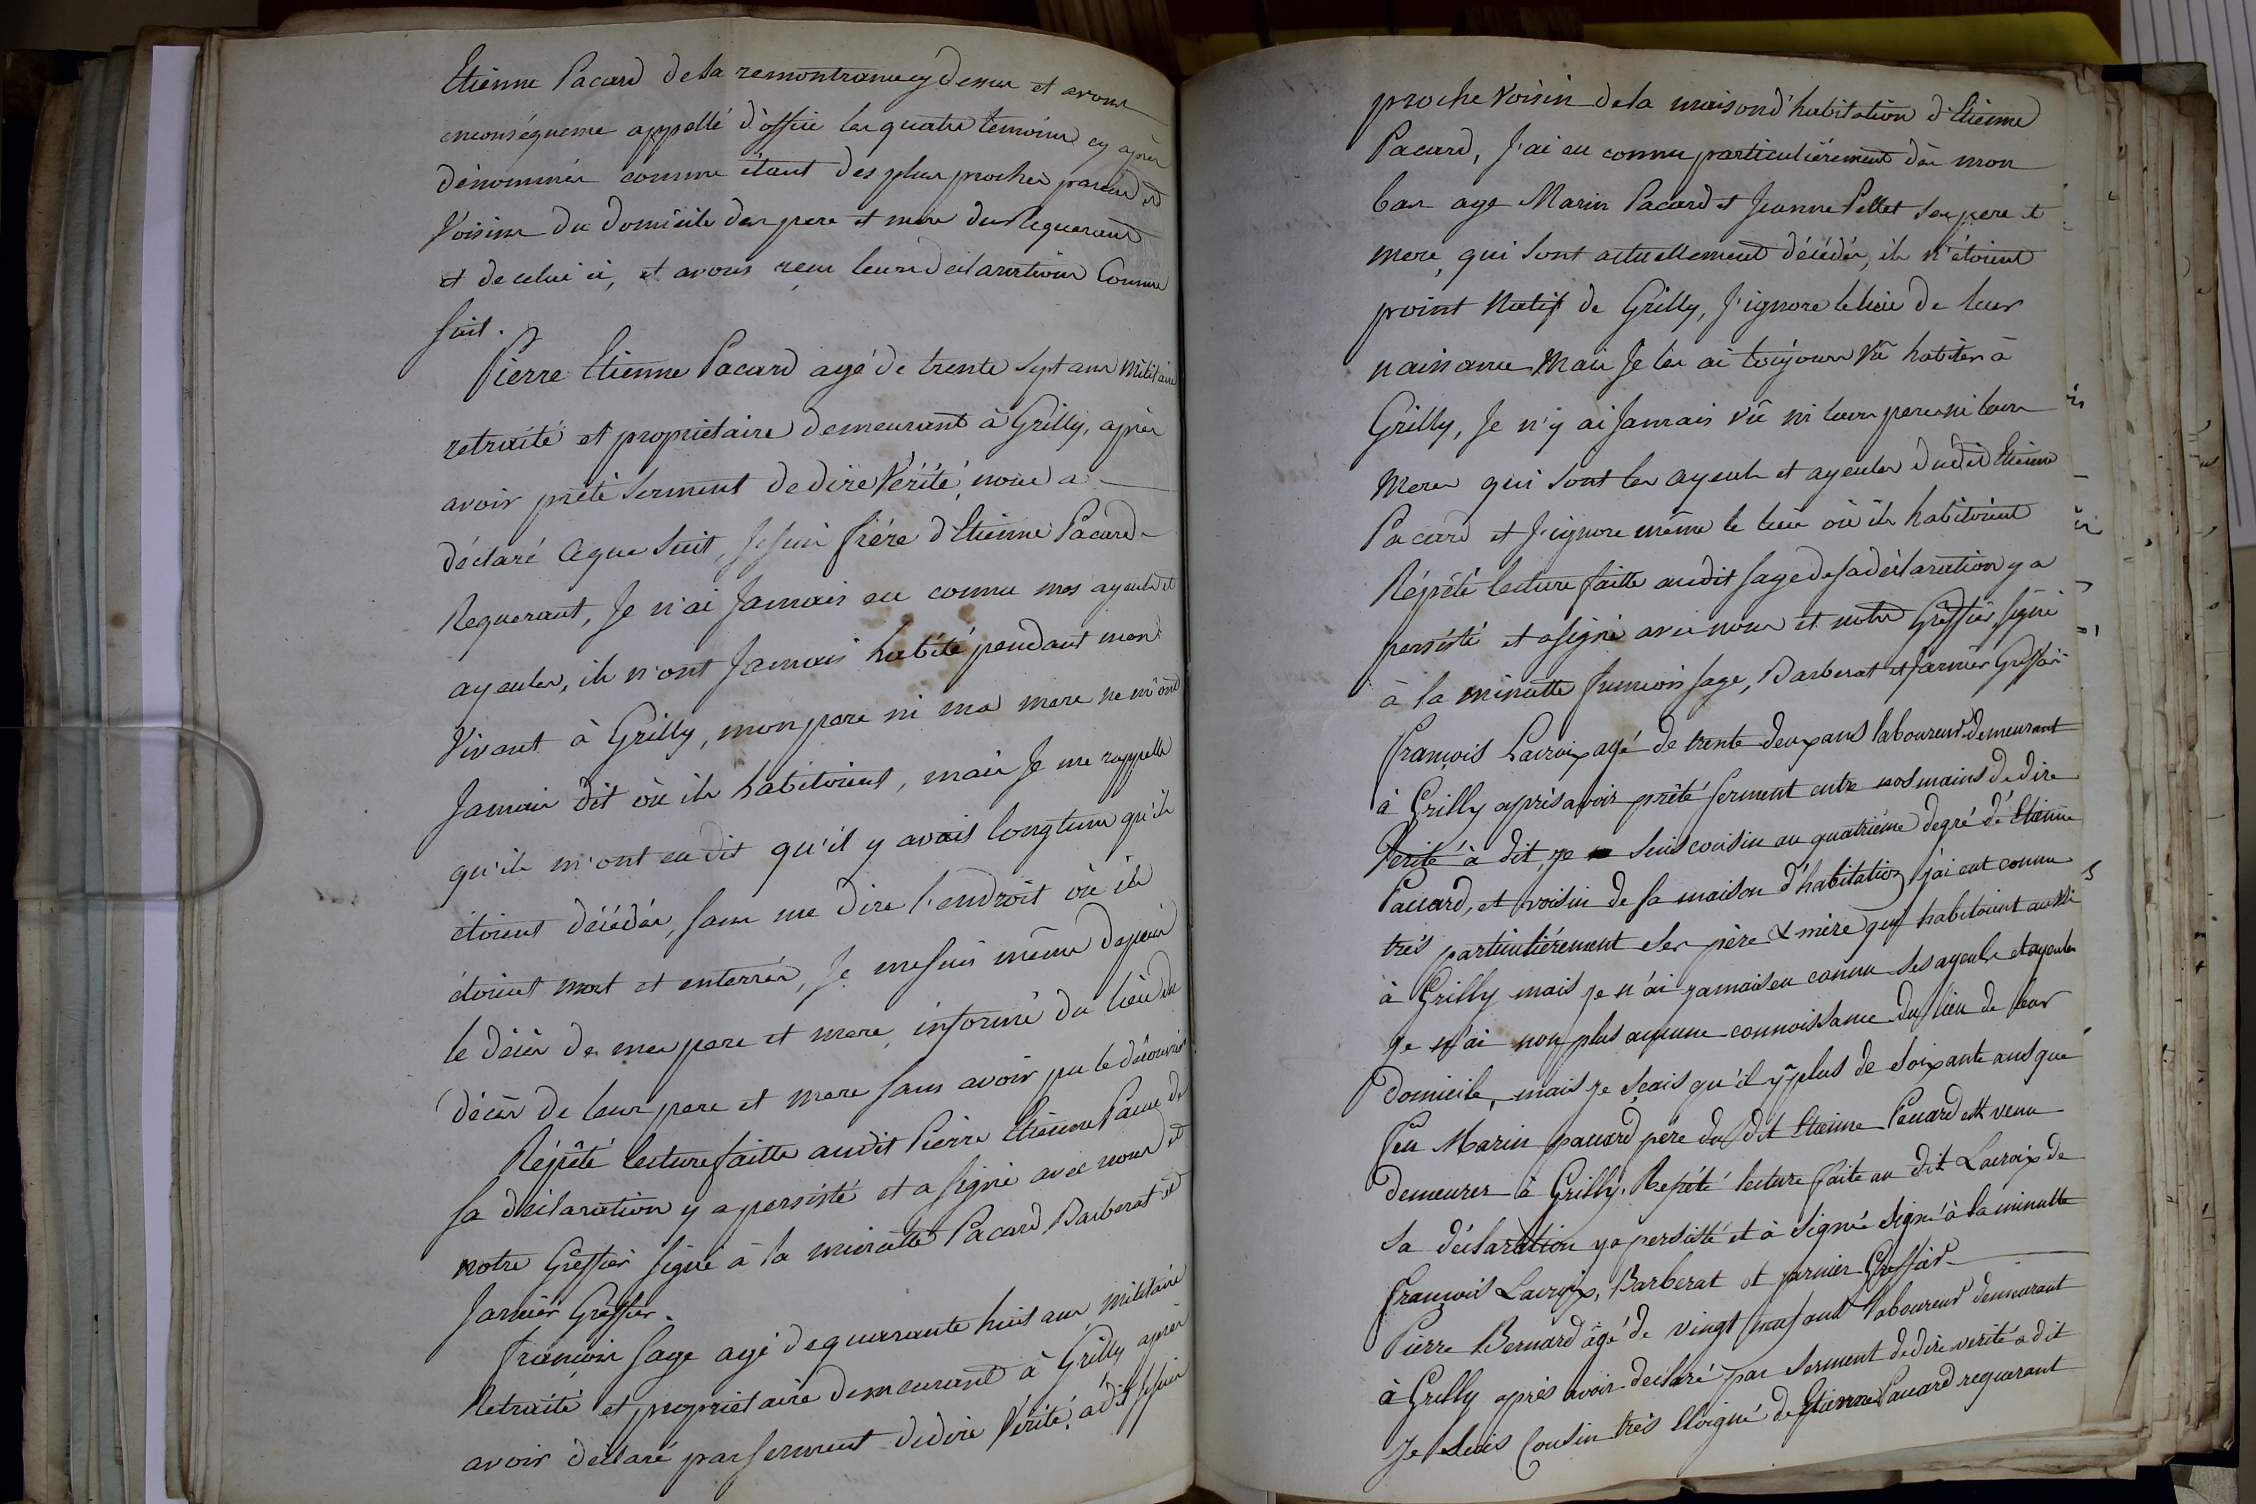 Etienne Pacard de sa remontrance cy dessus et avons
enconséquence appellé d'office les quatre temoins cy après
dénommés comme étant des plus proches parens et
Voisins du domicile des pere et mere du Requerant
et de celui ci, et avons reçu leurs déclarations Comme
suit.
Pierre Etienne Pacard agé de trente sept ans Militaire
retraité et propriétaire demeurant à Grilly, après
avoir prêté serment de dire Vérité, nous a
déclaré ce que suit, Je suis frére d'Etienne Pacard
Requerant, Je n'ai Jamais eu connu mes ayeuls et
ayeules, ils n'ont Jamais habité pendant mon
Vivant à Grilly, mon pere ni ma mere ne m'ont
Jamais dit où ils habitoient, mais Je me rappelle
qu'ils m'ont eu dit qu'il y avais longtems qu'ils
étoient décédés, sans me dire l'endroit où ils
étoient mort et enterrés, Je me suis même depuis
le décès de mes pere et mere, informé du lieu du
décès de leurs pere et mere sans avoir pu le découvrir
Répété lecture faitte audit Pierre Etienne Pacard de
sa déclaration y a persisté et a signé avec nous et
notre Gréffier signé à la minutte Pacard Barberat et
Jarnier Greffier.
François Sage agé de quarante huit ans, militaire
Retraité et propriétaire demeurant à Grilly après
avoir déclaré par serment de dire Vérité, a dit Je suis
proche Voisin de la maison d'habitation d'Etienne
Pacard, J'ai eu connu particuliérement dès mon
bas age Marin Pacard et Jeanne Pellet ses pere et
mere, qui sont actuellement décédés, ils n'étoient
point Natif de Grilly, J'ignore le lieu de leur
naissance Mais Je les ai toujours vû habiter à
Grilly, Je n'y ai Jamais vû ni leurs peres ni leurs
Meres qui sont les ayeuls et ayeules dudit Etienne
Pacard et J'ignore même le lieu où ils habitoient
Répété lecture faitte audit Sage de sa déclaration y a
persisté et a signé avec nous et notre Greffier, signé
à la minutte François Sage, Barberat et Jarnier Greffier
François Lacroix agé de trente deux ans laboureur demeurant
à Grilly après avoir prêté serment entre nos mains de dire
Verité à dit, je suis cousin au quatriéme degré d'Etienne
Paccard, et voisin de sa maison d'habitation j'ai eut connu
très particuliérement ses père & mère qui habitoient aussi
à Grilly mais je n'ai jamais eu connu ses ayeuls et ayeules
je n'ai non plus aucune connoissance du lieu de leur
Domicile, mais je sçais qu'il y a plus de soixante ans que
feu Marin paccard pere du dit Etienne Paccard est venu
demeurer à Grilly. Répété lecture faite au dit Lacroix de
sa déclaration y a persisté et à signé signé à la minutte
François Lacroix, Barberat et jarnier Greffier
Pierre Bernard âgé de vingt ans laboureur demeurant
à Grilly après avoir declaré par serment de dire verité a dit
Je suis Cousin très éloigné de Etienne Paccard requerant